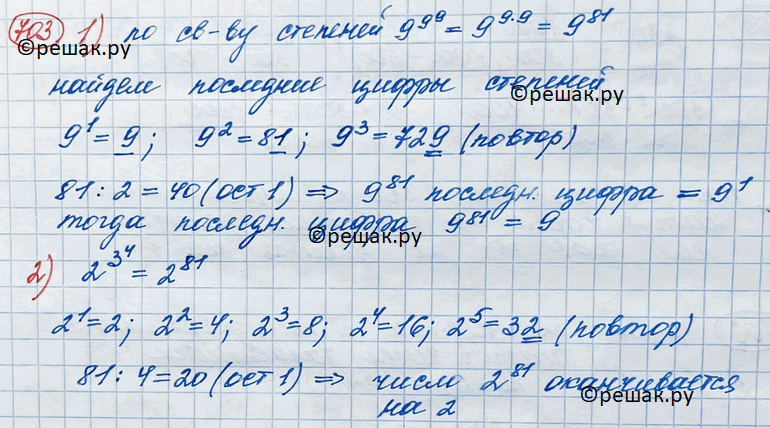 703 1) по св-ву степеней 9^9^9 = 9^9·9 = 9^81
©решак.ру
найдем последние цифры степеней
©решак.ру
9^1 = 9; 9^2 = 81; 9^3 = 729 (повтор)
81 : 2 = 40 (ост 1) ⇒ 9^81 последн. цифра = 9^1
тогда последн. цифра 9^81 = 9
©решак.ру
2) 2^3^4 = 2^81
2^1 = 2; 2^2 = 4; 2^3 = 8; 2^4 = 16; 2^5 = 32 (повтор)
81 : 4 = 20 (ост 1) ⇒ число 2^81 оканчивается
на 2
©решак.ру